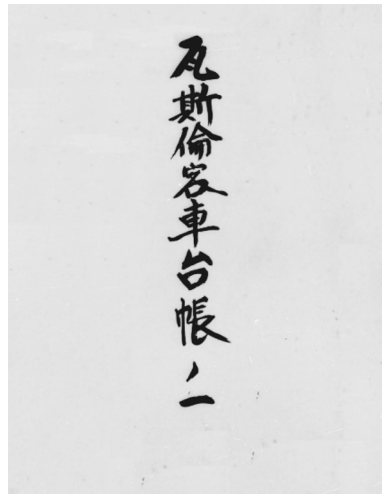 瓦斯倫客車台帳ノ一